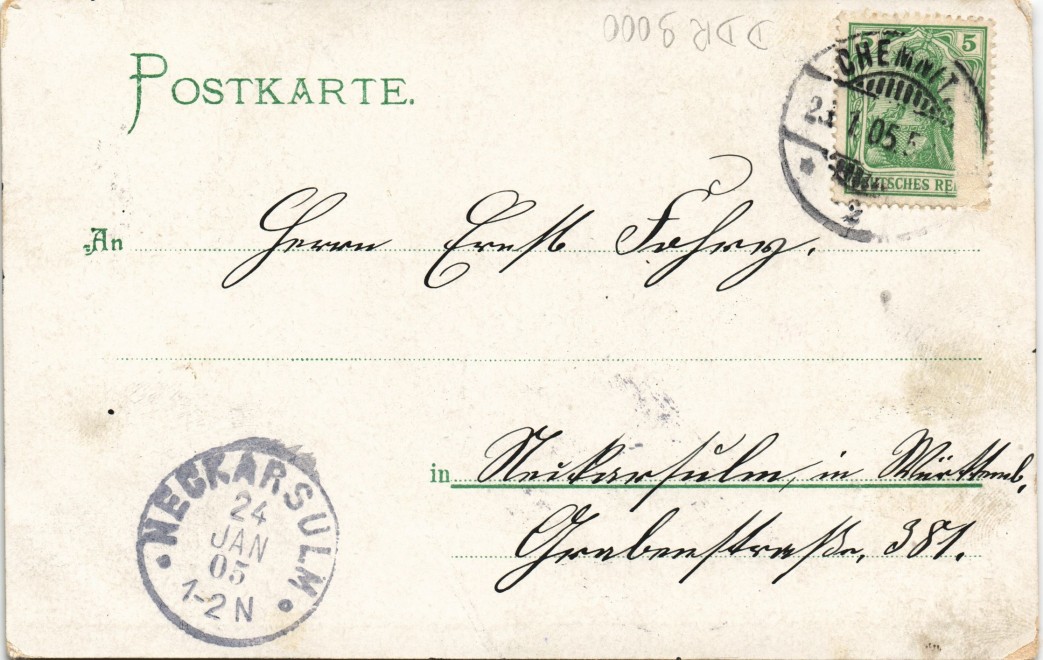 DDR 9000
POSTKARTE.
5 5
CHEMNITZ
1.05.5
DEUTSCHES REI
2
An Herrn Ernst Fahry.
in Neckarsulm, in Württemb,
Grabenstraße, 381.
NECKARSULM
24
JAN
05
1-2 N